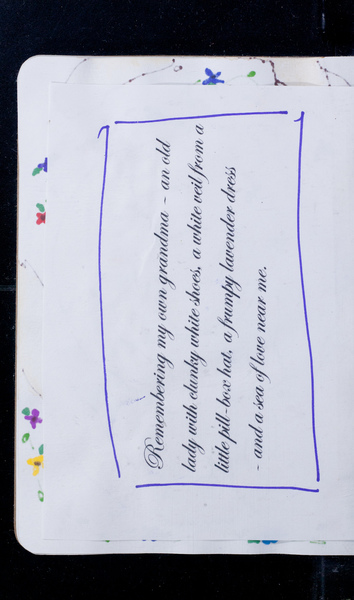 Remembering my own grandma - an old
lady with clunky white shoes, a white veil from a
little pill-box hat, a frumpy lavender dress
- and a sea of love near me.